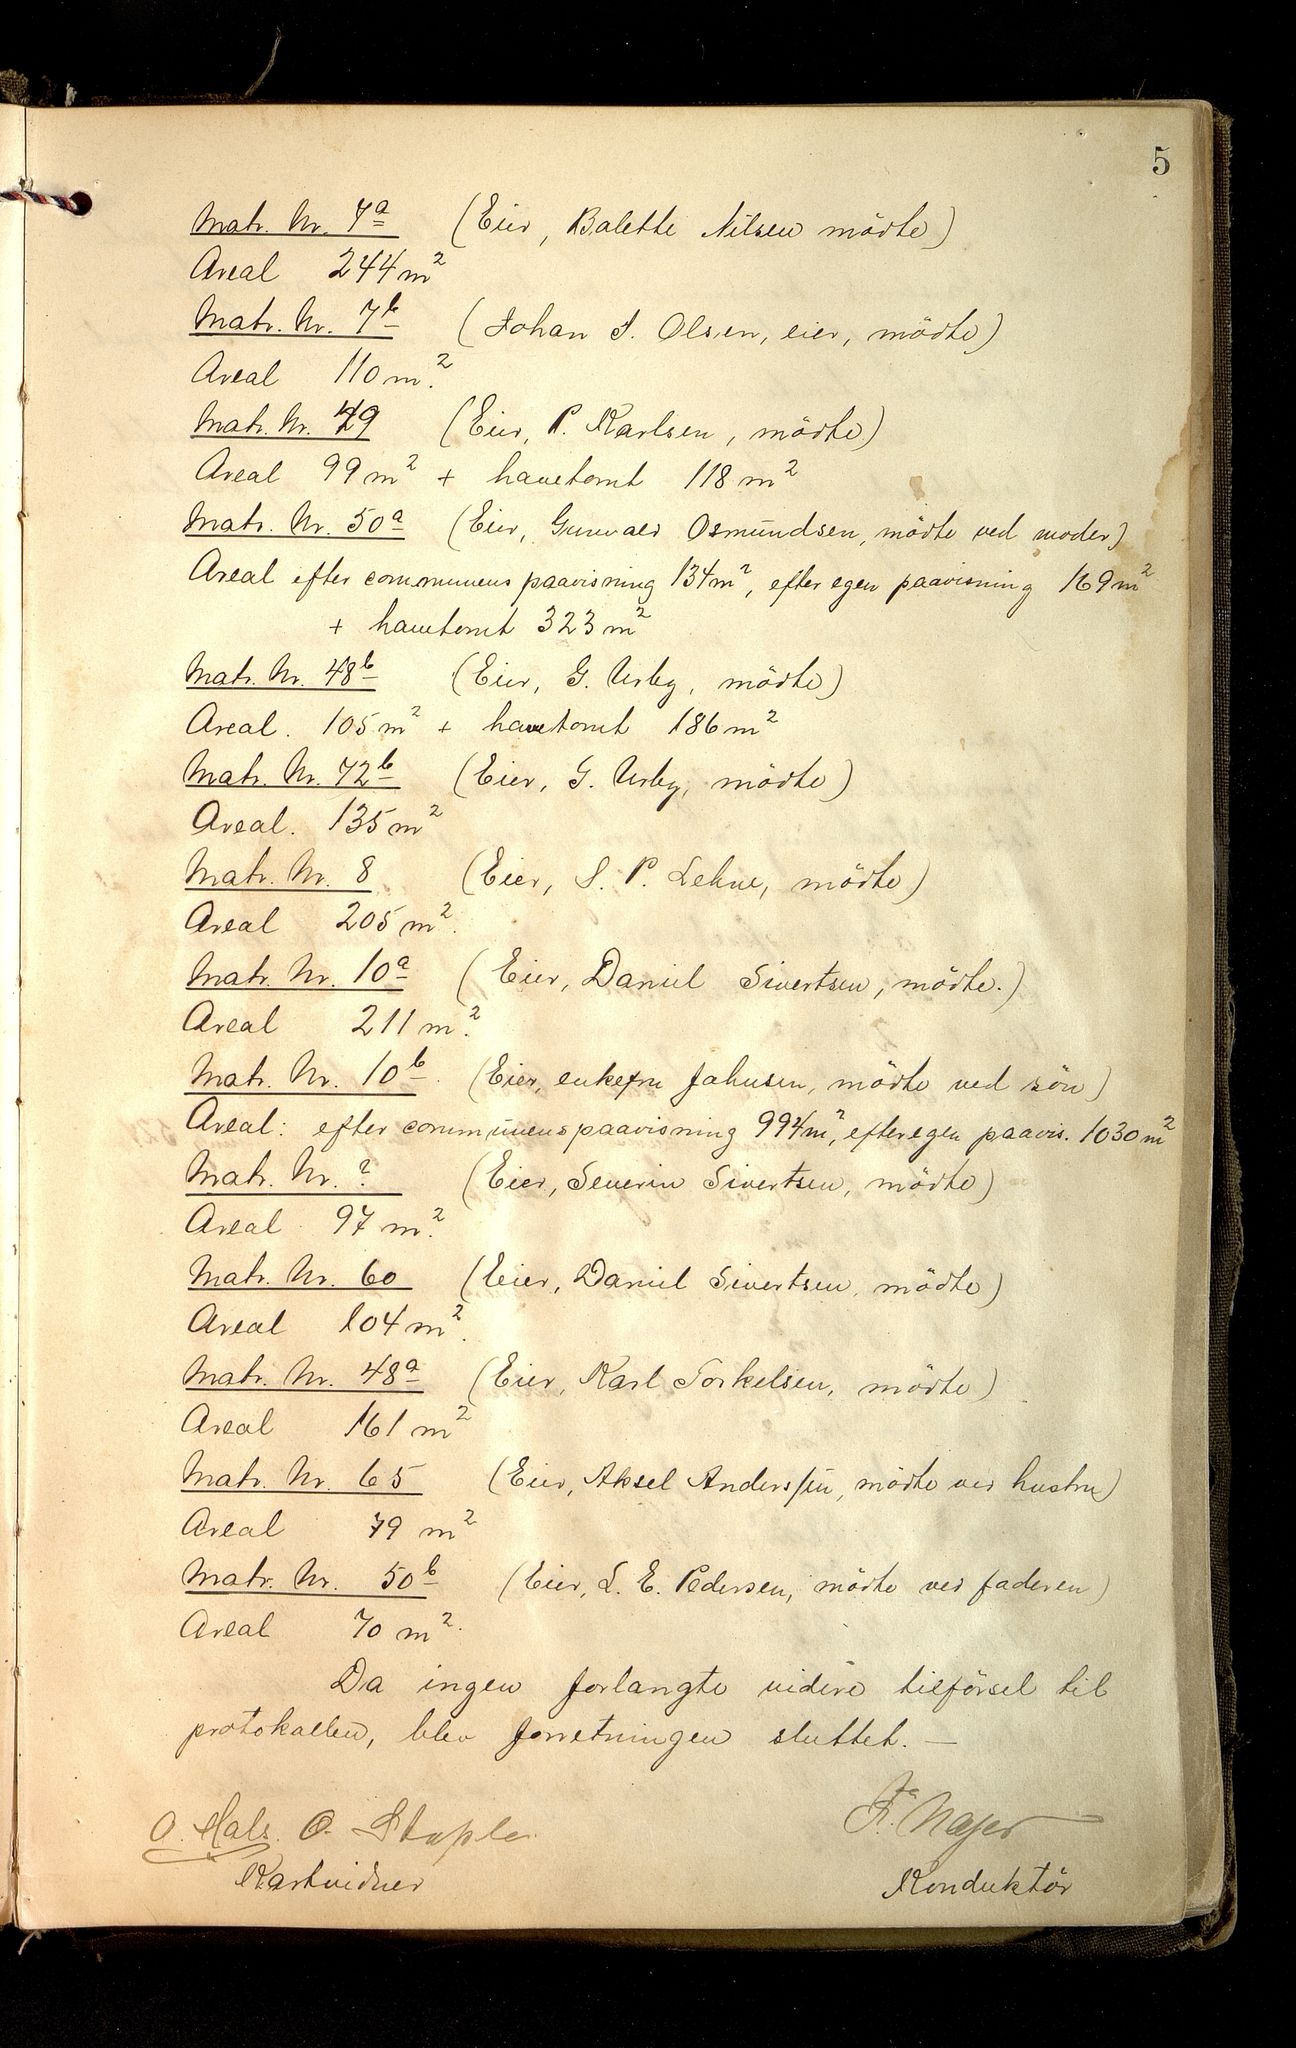 5
Matr. Nr. 7a (Eier, Balette Nilsen mödte)
Areal 244 m²
Matr. Nr. 7b (Johan J. Olsen, eier, mödte)
Areal 110 m².
Matr. Nr. 49 (Eier, P. Karlsen, mödte)
Areal 99 m² + havetomt 118 m²
Matr. Nr. 50a (Eier, Gunvald Osmundsen, mödte ved moder)
Areal efter communens paavisning 134 m², efter egen paavisning 169 m²
+ havetomt 323 m²
Matr. Nr. 48b (Eier, G. Ueby, mödte)
Areal. 105 m² + havetomt 186 m²
Matr. Nr. 72b (Eier, G. Ueby, mödte)
Areal. 135 m²
Matr. Nr. 8 (Eier, S. P. Lehne, mödte)
Areal 205 m².
Matr. Nr. 10a (Eier, Daniel Sivertsen, mödte.)
Areal 211 m².
Matr. Nr. 10b. (Eier, enkefru Jahnsen, mödte ved sön)
Areal: efter communens paavisning 994 m², efter egen paavis. 1030 m²
Matr. Nr. ? (Eier, Severin Sivertsen, mödte)
Areal 97 m².
Matr. Nr. 60 (Eier, Daniel Sivertsen, mödte)
Areal 104 m².
Matr. Nr. 48a (Eier, Karl Torkelsen, mödte)
Areal 161 m²
Matr. Nr. 65 (Eier, Aksel Anderssen, mödte ved hustru)
Areal 79 m²
Matr. Nr. 50b (Eier, L. E. Pedersen, mödte ved faderen)
Areal 70 m².
Da ingen forlangte videre tilförsel til
protokollen, blev forretningen sluttet. —
O. Hals. O. Stople. Fr. Najer
Kartvidner Konduktör